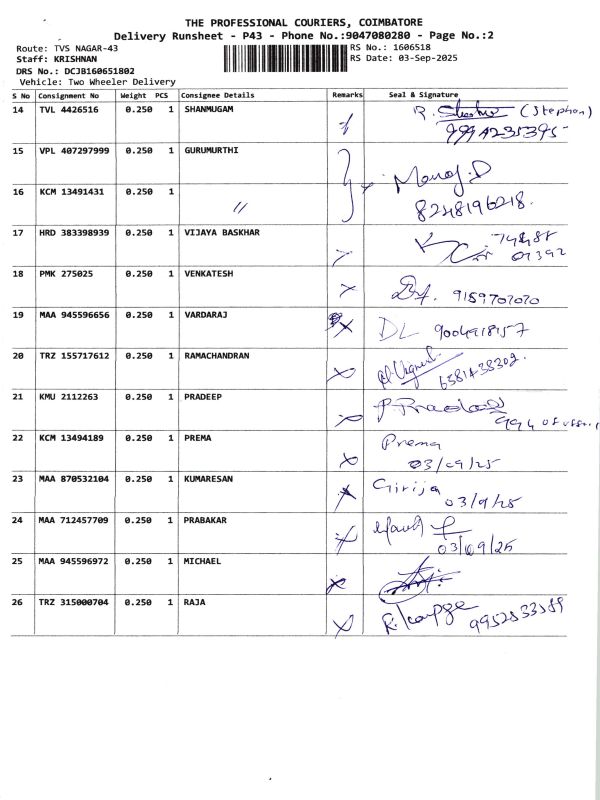 THE PROFESSIONAL COURIERS, COIMBATORE
Delivery Runsheet - P43 - Phone No.:9047080280 - Page No.:2
Route: TVS NAGAR-43 RS No.: 1606518
Staff: KRISHNAN RS Date: 03-Sep-2025
DRS No.: DCJB160651802
Vehicle: Two Wheeler Delivery
S No Consignment No Weight PCS Consignee Details Remarks Seal & Signature
14 TVL 4426516 0.250 1 SHANMUGAM R. (Stephan)
9994235395
15 VPL 407297999 0.250 1 GURUMURTHI
Manoj.D
16 KCM 13491431 0.250 1 〃 8248196218.
17 HRD 383398939 0.250 1 VIJAYA BASKHAR
18 PMK 275025 0.250 1 VENKATESH 9159702020
19 MAA 945596656 0.250 1 VARDARAJ DL 9004918157
20 TRZ 155717612 0.250 1 RAMACHANDRAN
6381438302.
21 KMU 2112263 0.250 1 PRADEEP P. Pradeep
22 KCM 13494189 0.250 1 PREMA Prema
03/09/25
23 MAA 870532104 0.250 1 KUMARESAN Girija
03/9/25
24 MAA 712457709 0.250 1 PRABAKAR
03/09/25
25 MAA 945596972 0.250 1 MICHAEL
26 TRZ 315000704 0.250 1 RAJA